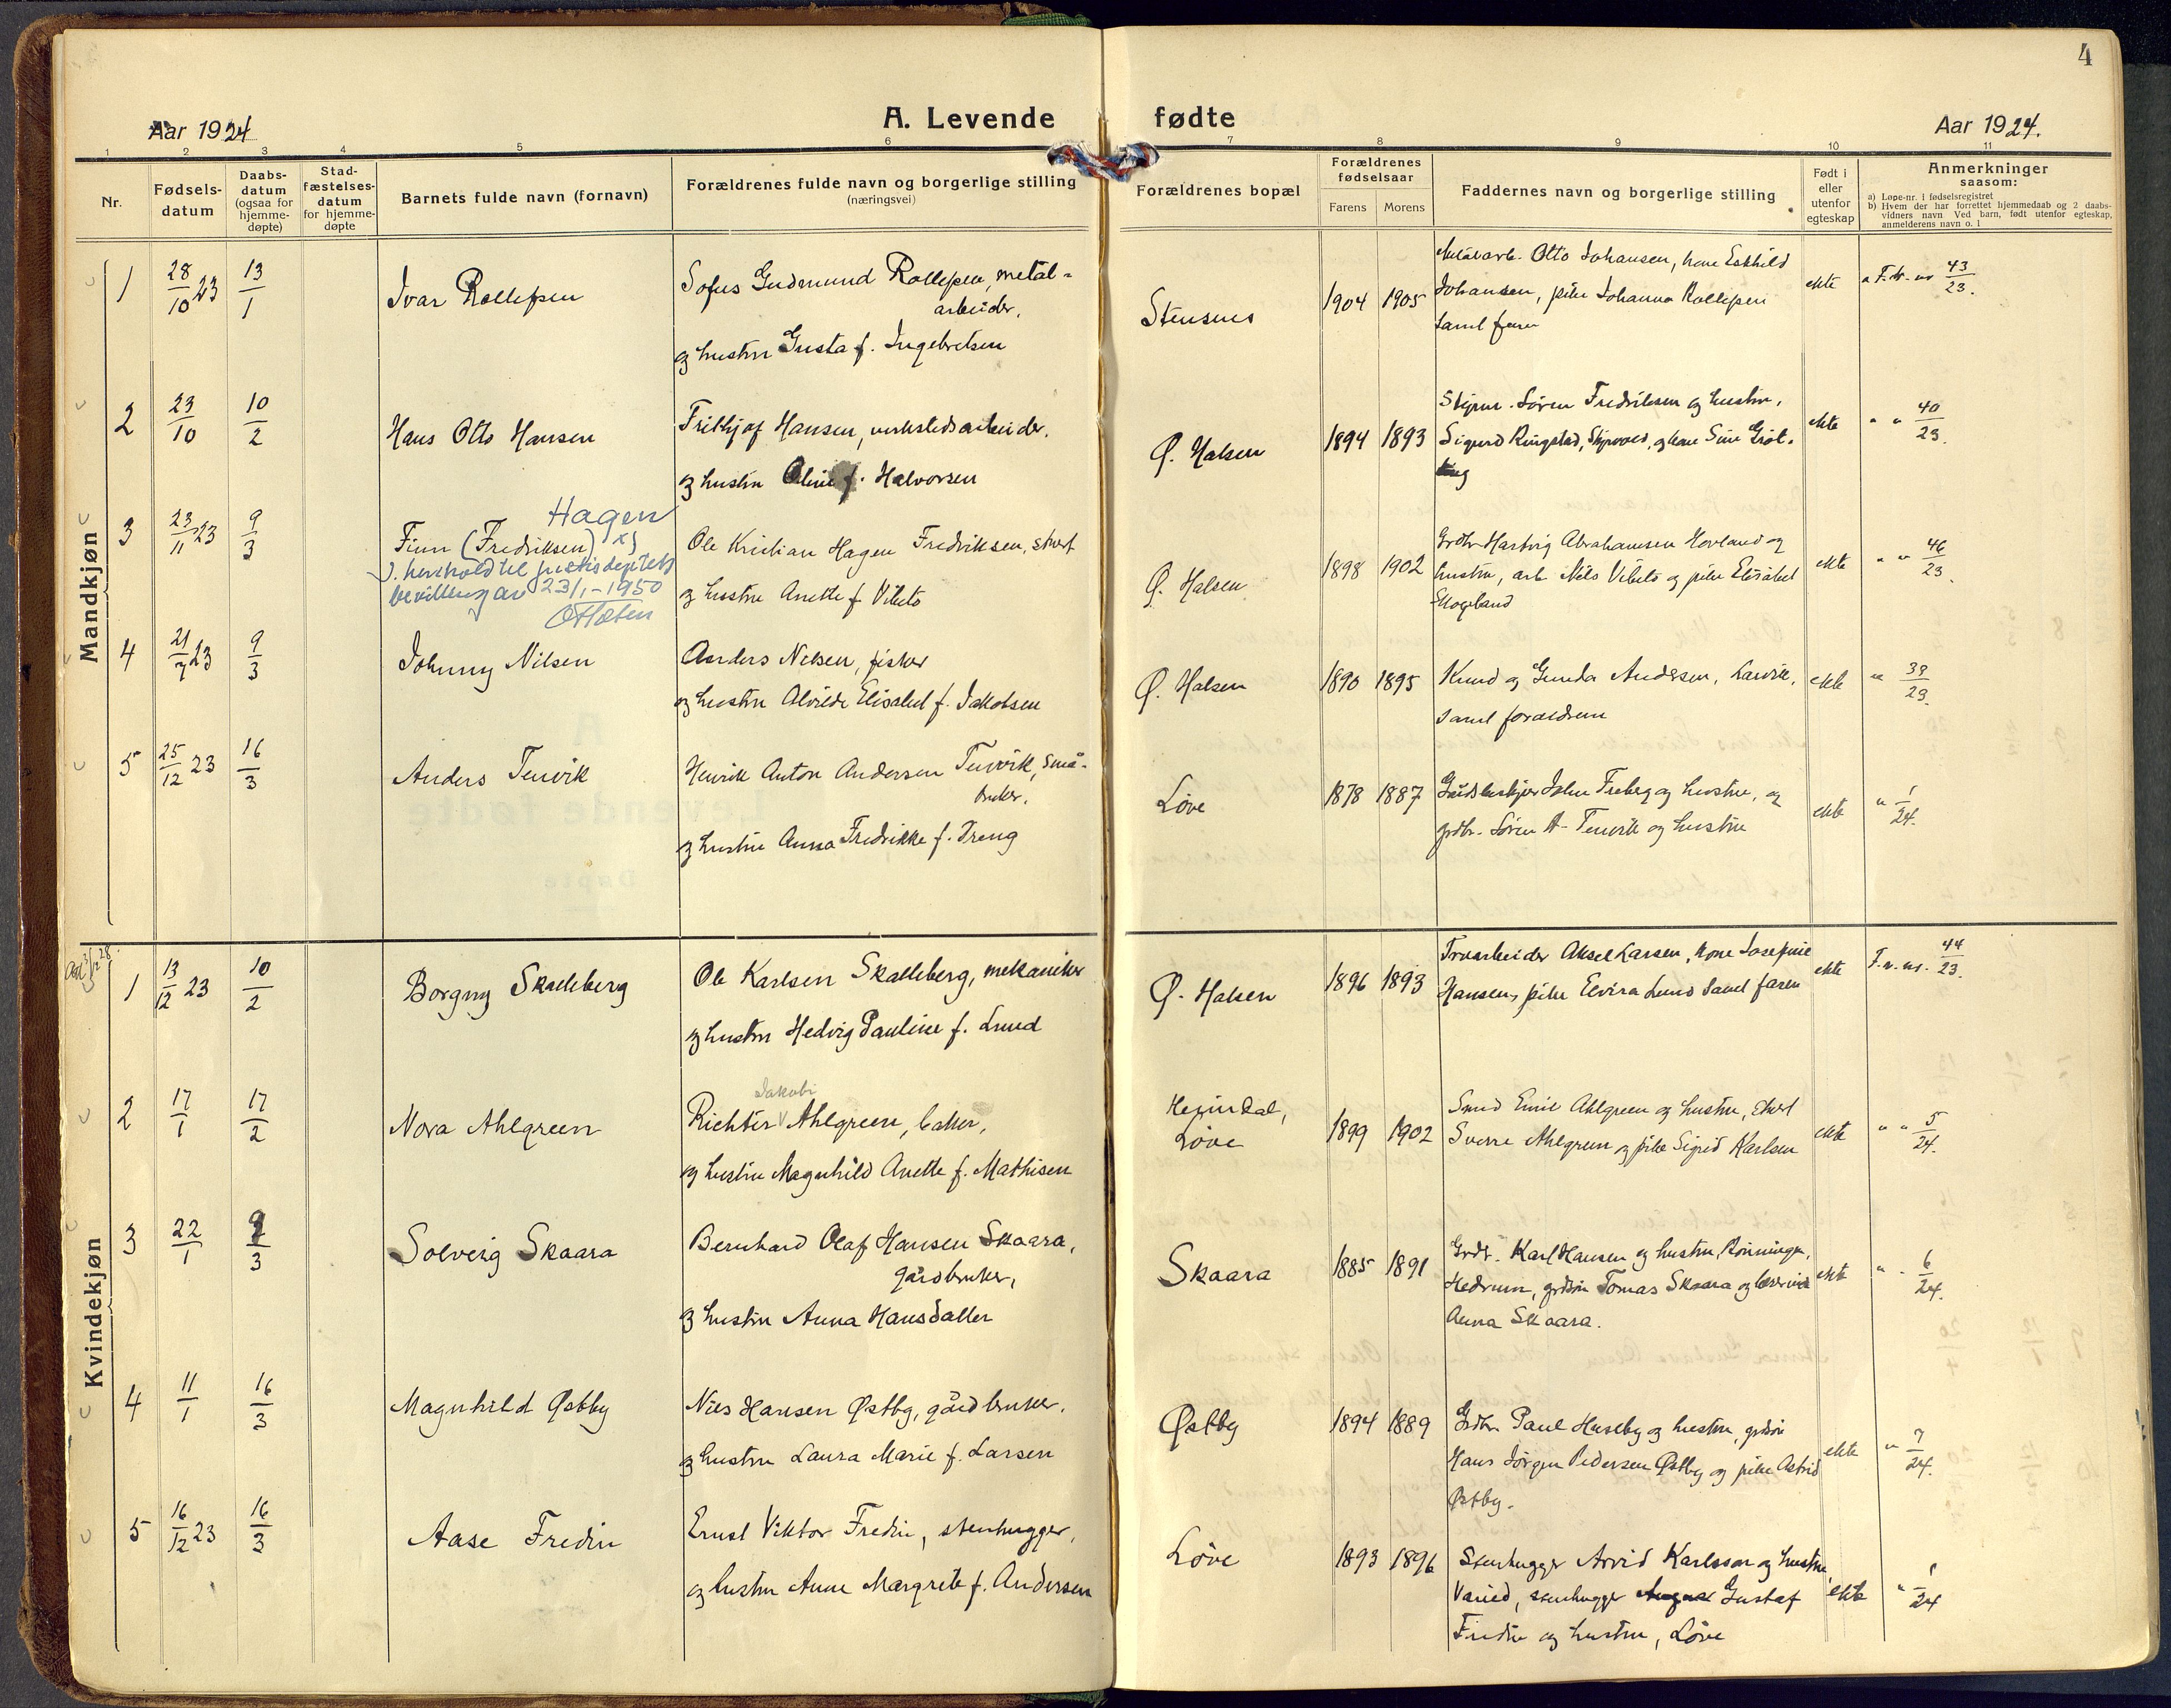 4
Aar 1924
A. Levende fødte
Aar 1924.
1 2 3 4 5 6 7 8 9 10 11
Nr.
Fødsels-
datum
Daabs-
datum
(ogsaa for
hjemme-
døpte)
Stad-
fæstelses-
datum
for hjemme-
døpte
Barnets fulde navn (fornavn)
Forældrenes fulde navn og borgerlige stilling
(næringsvei)
Forældrenes bopæl
Forældrenes
fødselsaar
Farens Morens
Faddernes navn og borgerlige stilling
Født i
eller
utenfor
egteskap
Anmerkninger
saasom:
a) Løpe-nr. i fødselsregistret
b) Hvem der har forrettet hjemmedaab og 2 daabs-
vidners navn Ved barn, født utenfor egteskap,
anmelderens navn o. l
Mandkjøn
1 28/10 23 13/1 Ivar Rollefsen
Sofus Gudmund Rollefsen, metal-
arbeider,
og hustru Gusta f. Ingebretsen
Stensnes
1904 1905
Otto Johansen, kone Eskhild
Johansen, pike Johanna Rollefsen
samt faren
ekte
a F. nr 43/23.
2 23/10 10/2 Hans Otto Hansen
Frithjof Hansen, verkstedsarbeider,
og hustru Oline f. Halvorsen
Ø. Halsen
1894 1893
Søren Fredriksen og hustru,
Sigurd Ringstad, og kone
ekte
" " 40/23.
3 23/11 23 9/3 Finn (Fredriksen) Hagen x)
x). henhold til justisdeptets
bevilling av 23/1-1950
Ole Kristian Hagen Fredriksen, stuert
og hustru Anette f. Vibeto
Ø. Halsen
1898 1902
Grdbr. Hartvig Abrahamsen Hovland og
hustru, arb. Nils Vibeto og pike Elisabet
Skogland
ekte
" " 46/23.
4 21/7 23 9/3 Johnny Nilsen
Anders Nilsen, fisker
og hustru Alvilde Elisabet f. Jakobsen
Ø. Halsen
1890 1895
Knud og Gunda Andersen, Larvik,
samt forældrene
ekte
" 33/23.
5 25/12 23 16/3 Anders Tenvik
Henrik Anton Andersen Tenvik, små-
bruker,
og hustru Anna Fredrikke f. Treng
Løve
1878 1887
John Freberg og hustru, og
grdbr. Søren A. Tenvik og hustru
ekte
" 1/24.
Kvindekjøn
1 13/12 23 10/2 Borgny Skalleberg
Ole Karlsen Skalleberg, mekaniker
og hustru Hedvig Pauline f. Lund
Ø. Halsen
1896 1893
Aksel Larsen, kone Josefine
Hansen, pike Elvira Lund samt faren
ekte
F. r. nr. 44/23.
2 17/1 17/2 Nora Ahlgreen
Jakobi
Richter Ahlgreen, baker,
og hustru Magnhild Anette f. Mathisen
Heimdal,
Løve
1899 1902
Smed Emil Ahlgreen og hustru,
Sverre Ahlgreen og pike Sigrid Karlsen
ekte
" " 5/24.
3 22/1 9/3 Solveig Skaara
Bernhard Olaf Hansen Skaara,
gårdbruker,
og hustru Anna Hansdatter
Skaara
1885 1891
Grdbr. Karl Hansen og hustru, Rønningen,
Hedrum, grdsøn Tomas Skaara og lærerinde
Anna Skaara.
ekte
" " 6/24.
4 11/1 16/3 Magnhild Østby
Nils Hansen Østby, gårdbruker,
og hustru Laura Marie f. Larsen
Østby
1894 1889
Grdbr. Paul Huseby og hustru, grdsøn
Hans Jørgen Pedersen Østby og pike Astrid
Østby.
ekte
" 7/24.
5 16/12 23 16/3 Aase Fredin
Ernst Viktor Fredin, stenhugger,
og hustru Anne Margrete f. Andersen
Løve
1893 1896
Stenhugger Arvid Karlsson og hustru
stenhugger August Gustaf
Fredin og hustru, Løve
ekte
" 1/24